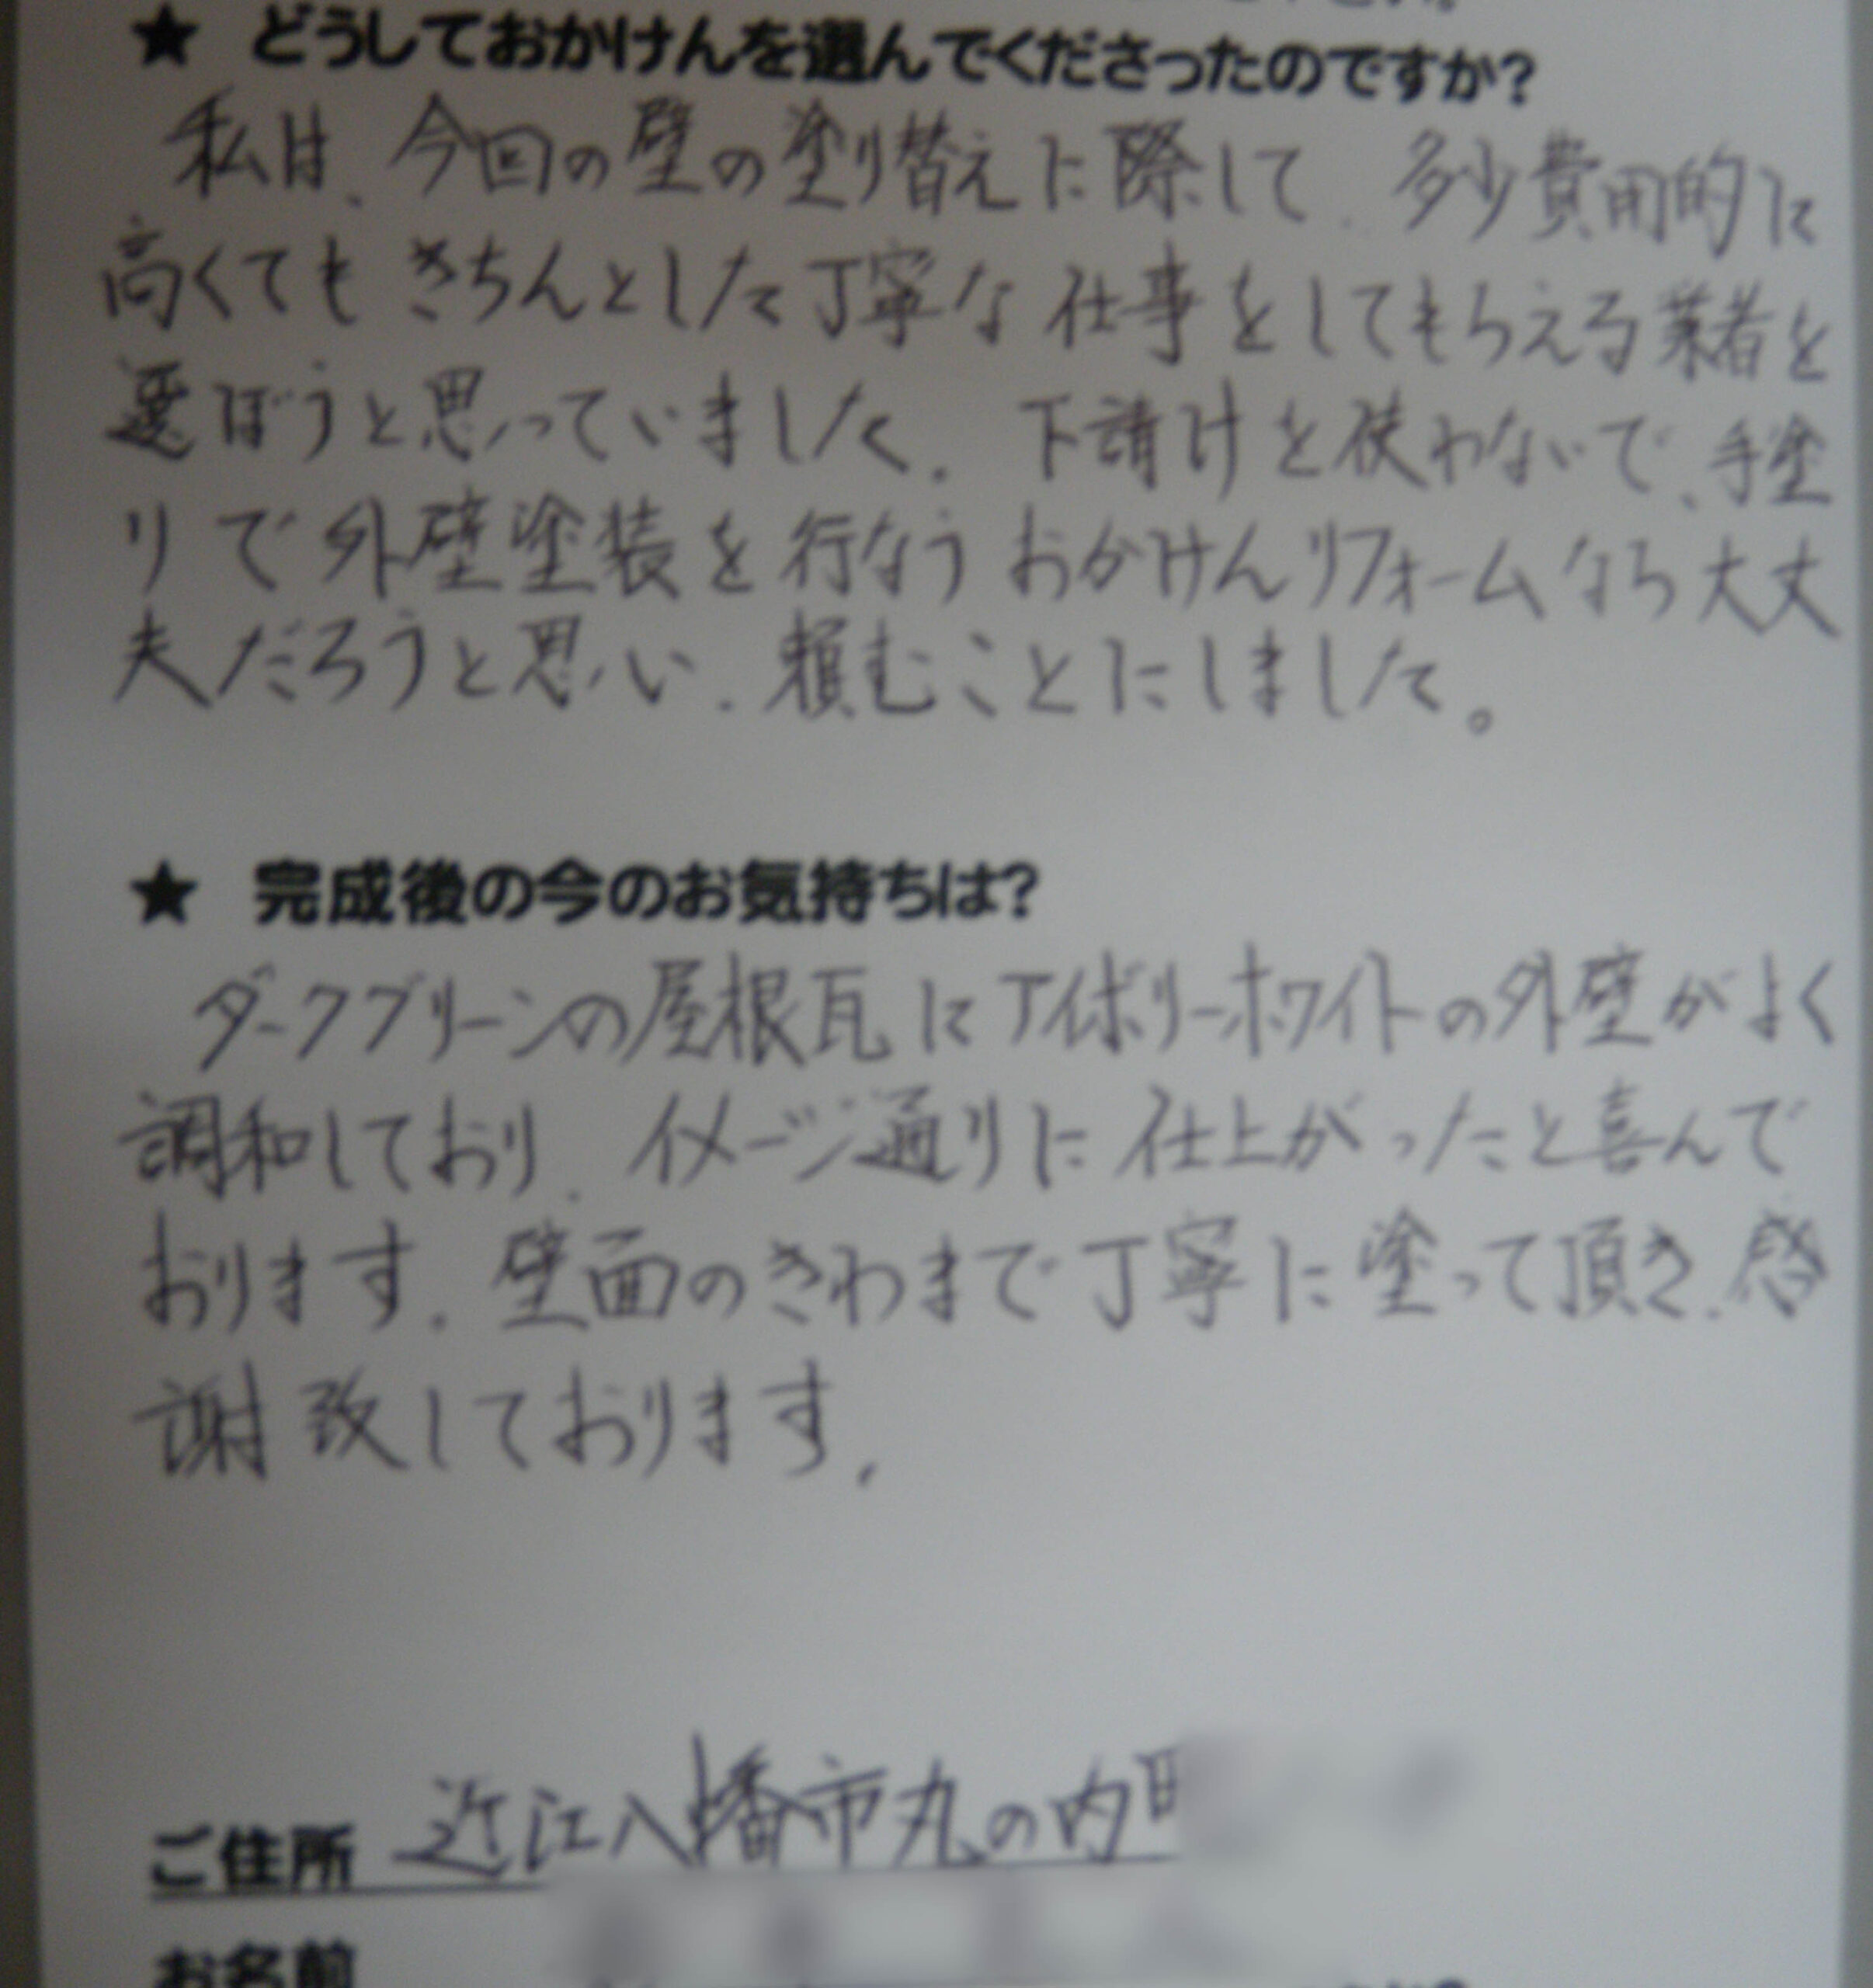 ★ どうしておかけんを選んでくださったのですか?
私は、今回の壁の塗り替えに際して、多少費用的に
高くてもきちんとした丁寧な仕事をしてもらえる業者を
選ぼうと思っていました。下請けを使わないで、手塗
りで外壁塗装を行なうおかけんリフォームなら大丈
夫だろうと思い、頼むことにしました。
★ 完成後の今のお気持ちは?
ダークグリーンの屋根瓦にアイボリーホワイトの外壁がよく
調和しており、イメージ通りに仕上がったと喜んで
おります。壁面のきわまで丁寧に塗って頂き、感
謝致しております。
ご住所 近江八幡市丸の内町
お名前